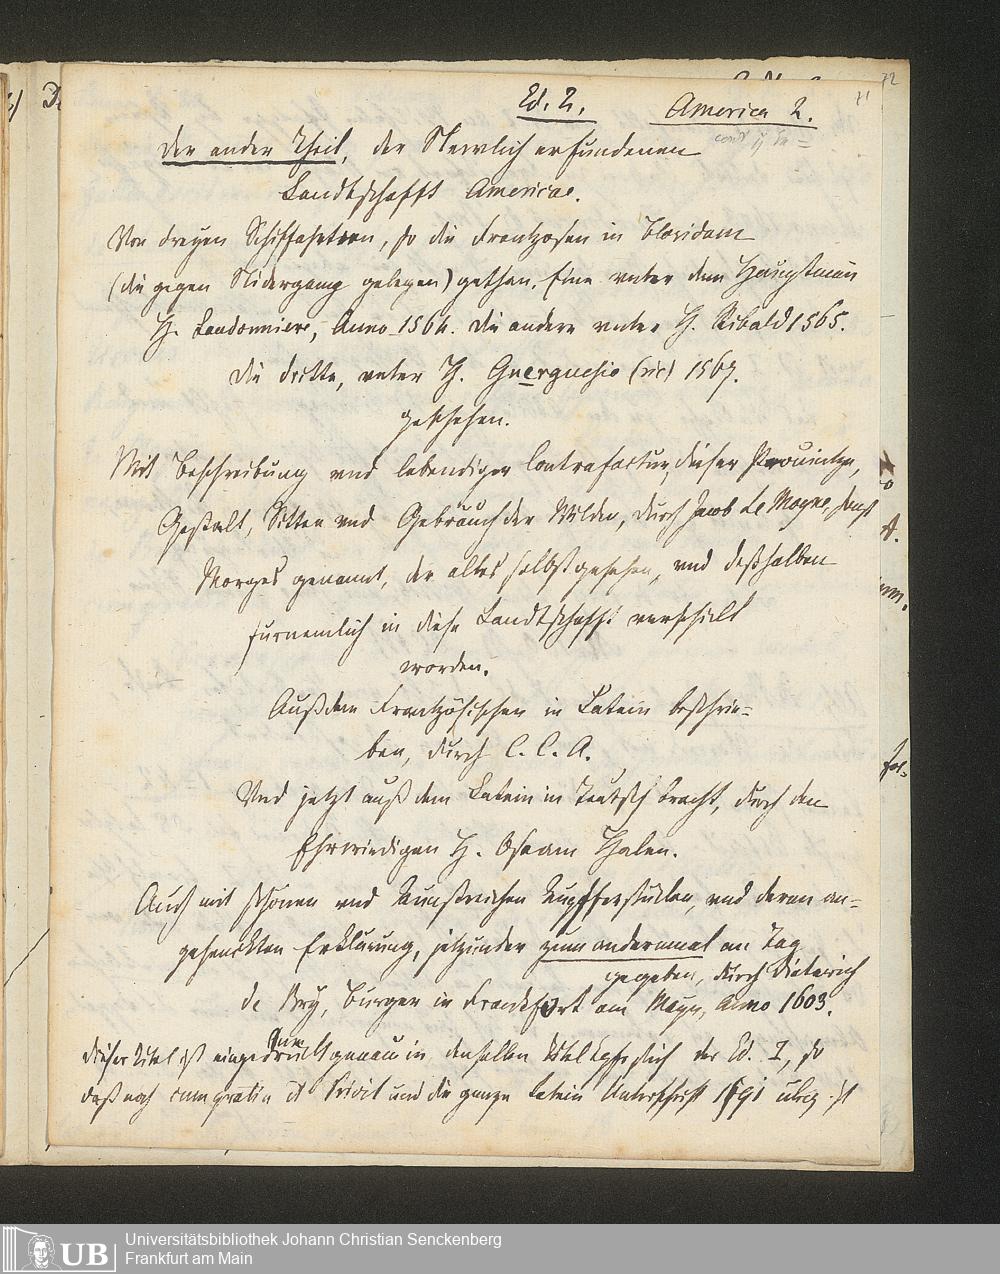 72
71
Ed. 2. America 2.
Der ander Theil, der Newlich erfundenen
Landtschafft Americae.
Von dreyen Schiffahrten, so die Frantzosen in Floridam
(die gegen Nidergang gelegen) gethan. Eine vnter dem Häuptmann
H. Laudonniere, Anno 1564. Die andere vnter H. Ribald 1565.
Die dritte, vnter H. Guerguesio (sic) 1567.
geschehen.
Mit Beschreibung vnd lebendiger Contrafactur, dieser Prouintze,
Gestalt, Sitten vnd Gebräuch der Wilden, durch Jacob Le Moyne, sonst
Morges genannt, der alles selbst gesehen, vnd deßhalben
furnemlich in diese Landtschafft verschickt
worden.
Auß dem Frantzösischen in Latein beschrie=
ben, durch C. C. A.
Vnd jetzt auß dem Latein in Teutsch bracht, durch den
Ehrwirdigen H. Oseam Halen.
Auch mit schönen vnd kunstreichen Kupfferstücken, vnd deren an=
gehenckten Erklärung, jetzunder zum andernmal an Tag
gegeben, durch Dieterich
de Bry, Burger in Franckfort am Mayn, Anno 1603.
Dieser Titel ist eingedruckt genau in denselben der Ed. I, so
daß noch cum gratia et Privil und die ganze Latein Unterschrift 1591 übrig ist
Universitätsbibliothek Johann Christian Senckenberg
Frankfurt am Main
UB